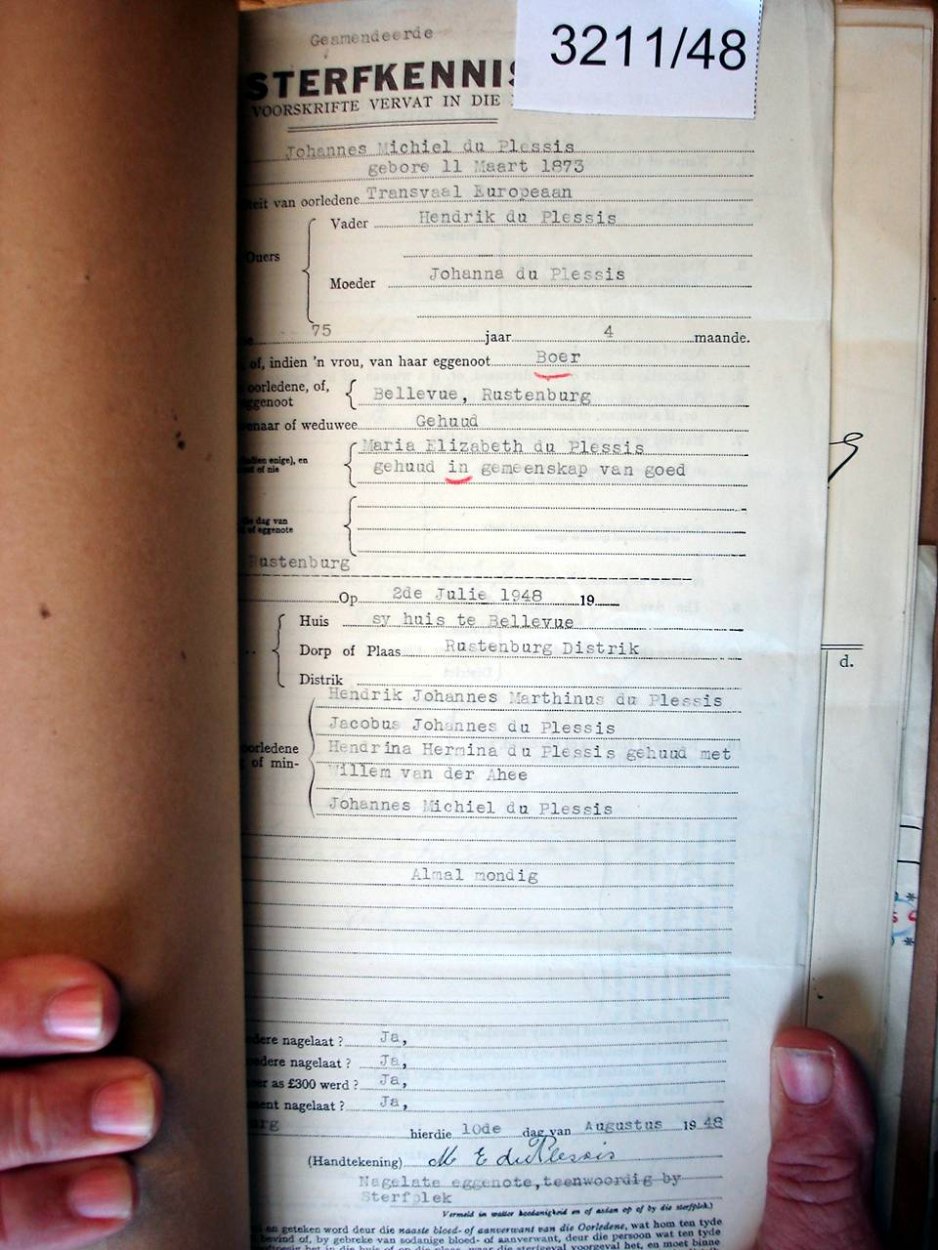 Geamendeerde
3211/48
STERFKENNIS
VOORSKRIFTE VERVAT IN DIE
Johannes Michiel du Plessis
gebore 11 Maart 1873
teit van oorledene Transvaal Europeaan
Vader Hendrik du Plessis
Ouers
Johanna du Plessis
Moeder
75 jaar 4 maande.
of, indien 'n vrou, van haar eggenoot Boer
oorledene, of,
eggenoot
Bellevue, Rustenburg
enaar of weduwee Gehuud
Maria Elizabeth du Plessis
(indien enige), en
of nie
gehuud in gemeenskap van goed
die dag van
of eggenote
Rustenburg
Op 2de Julie 1948 19
Huis sy huis te Bellevue
Dorp of Plaas Rustenburg Distrik
Distrik
Hendrik Johannes Marthinus du Plessis
Jacobus Johannes du Plessis
oorledene Hendrina Hermina du Plessis gehuud met
of min- Willem van der Ahee
Johannes Michiel du Plessis
d.
Almal mondig
dere nagelaat ? Ja,
edere nagelaat ? Ja,
er as £300 werd ? Ja,
ent nagelaat ? Ja,
urg hierdie 10de dag van Augustus 1948
(Handtekening) M E du Plessis
Nagelate eggenote, teenwoordig by
Sterfplek
Vermeld in watter hoedanigheid en of astan op of by die sterfplek.)
en geteken word deur die naaste bloed- of aanverwant van die Oorledene, wat hom ten tyde
bevind of, by gebreke van sodanige bloed- of aanverwant, deur die persoon wat ten tyde
in die huis of op die plaas waar die sterfgeval voorgeval het, en moet binne